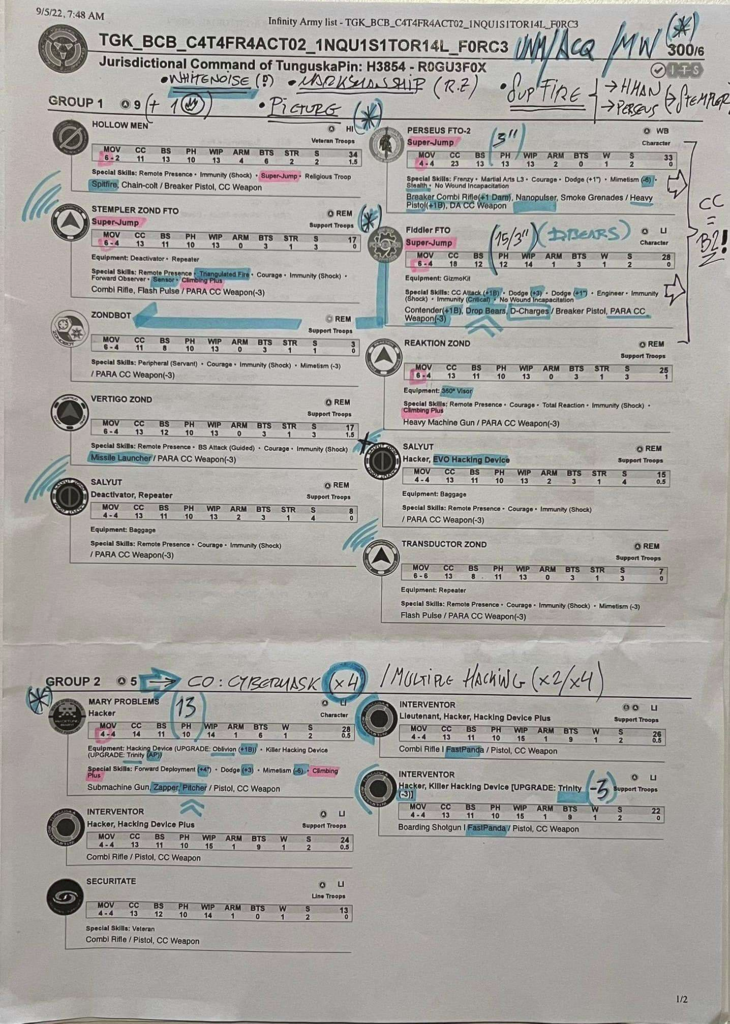 9/5/22, 7:48 AM
Infinity Army list - TGK_BCB_C4T4FR4ACT02_1NQU1S1TOR14L_F0RC3
TGK_BCB_C4T4FR4ACT02_1NQU1S1TOR14L_F0RC3
UNM/ACQ /MW (*)
300/6
Jurisdictional Command of TunguskaPin: H3854 - R0GU3F0X
ITS
• WHITENOISE (P) • MARKSMANSHIP (R.Z) • SUPFIRE → HMAN → PERSEUS (→ STEMPLER)
GROUP 1 9 (+ 1)
• PICTURE (*)
HOLLOW MEN
HI
Veteran Troops
MOV CC BS PH WIP ARM BTS STR S 34
6-2 11 13 10 13 4 6 2 2 1.5
Special Skills: Remote Presence • Immunity (Shock) • Super-Jump • Religious Troop
Spitfire, Chain-colt / Breaker Pistol, CC Weapon
PERSEUS FTO-2
3"
WB
Super-Jump
Character
MOV CC BS PH WIP ARM BTS W S 33
4-4 23 13 13 13 2 0 1 2 0
Special Skills: Frenzy • Martial Arts L3 • Courage • Dodge (+1") • Mimetism (-6) •
Stealth • No Wound Incapacitation
Breaker Combi Rifle(+1 Dam), Nanopulser, Smoke Grenades / Heavy
Pistol(+1B), DA CC Weapon
CC = B2!
STEMPLER ZOND FTO
REM
Super-Jump
Support Troops
(*)
MOV CC BS PH WIP ARM BTS STR S 17
6-4 13 11 10 13 0 3 1 3 0
Equipment: Deactivator • Repeater
Special Skills: Remote Presence • Triangulated Fire • Courage • Immunity (Shock) •
Forward Observer • Sensor • Climbing Plus
Combi Rifle, Flash Pulse / PARA CC Weapon(-3)
Fiddler FTO
(15/3") (DBEARS)
LI
Super-Jump
Character
MOV CC BS PH WIP ARM BTS W S 28
6-4 18 12 12 14 1 3 1 2 0
Equipment: GizmoKit
Special Skills: CC Attack (+1B) • Dodge (+3) • Dodge (+1") • Engineer • Immunity
(Shock) • Immunity (Critical) • No Wound Incapacitation
Contender(+1B), Drop Bears, D-Charges / Breaker Pistol, PARA CC
Weapon(-3)
ZONDBOT
REM
Support Troops
MOV CC BS PH WIP ARM BTS STR S 3
6-4 11 8 10 13 0 3 1 1 0
Special Skills: Peripheral (Servant) • Courage • Immunity (Shock) • Mimetism (-3)
/ PARA CC Weapon(-3)
REAKTION ZOND
REM
Support Troops
MOV CC BS PH WIP ARM BTS STR S 25
6-4 13 11 10 13 0 3 1 3 1
Equipment: 360º Visor
Special Skills: Remote Presence • Courage • Total Reaction • Immunity (Shock) •
Climbing Plus
Heavy Machine Gun / PARA CC Weapon(-3)
VERTIGO ZOND
REM
Support Troops
MOV CC BS PH WIP ARM BTS STR S 17
6-4 13 12 10 13 0 3 1 3 1.5
Special Skills: Remote Presence • BS Attack (Guided) • Courage • Immunity (Shock)
Missile Launcher / PARA CC Weapon(-3)
SALYUT
REM
Hacker, EVO Hacking Device
Support Troops
MOV CC BS PH WIP ARM BTS STR S 15
4-4 13 11 10 13 2 3 1 4 0.5
Equipment: Baggage
Special Skills: Remote Presence • Courage • Immunity (Shock)
/ PARA CC Weapon(-3)
SALYUT
REM
Deactivator, Repeater
Support Troops
MOV CC BS PH WIP ARM BTS STR S 8
4-4 13 11 10 13 2 3 1 4 0
Equipment: Baggage
Special Skills: Remote Presence • Courage • Immunity (Shock)
/ PARA CC Weapon(-3)
TRANSDUCTOR ZOND
REM
Support Troops
MOV CC BS PH WIP ARM BTS STR S 7
6-6 13 8 11 13 0 3 1 3 0
Equipment: Repeater
Special Skills: Remote Presence • Courage • Immunity (Shock) • Mimetism (-3)
Flash Pulse / PARA CC Weapon(-3)
GROUP 2 5 → CO: CYBERMASK (x4) / MULTIPLE HACKING (x2/x4)
(*)
MARY PROBLEMS
13
LI
Hacker
Character
MOV CC BS PH WIP ARM BTS W S 28
4-4 14 11 10 14 1 6 1 2 0.5
Equipment: Hacking Device (UPGRADE: Oblivion (+1B)) • Killer Hacking Device
(UPGRADE: Trinity (AP))
Special Skills: Forward Deployment (+4") • Dodge (+3) • Mimetism (-6) • Climbing
Plus
Submachine Gun, Zapper, Pitcher / Pistol, CC Weapon
INTERVENTOR
LI
Lieutenant, Hacker, Hacking Device Plus
Support Troops
MOV CC BS PH WIP ARM BTS W S 26
4-4 13 11 10 15 1 9 1 2 0.5
Combi Rifle | FastPanda / Pistol, CC Weapon
INTERVENTOR
LI
Hacker, Killer Hacking Device [UPGRADE: Trinity
(-3)]
-3
Support Troops
MOV CC BS PH WIP ARM BTS W S 22
4-4 13 11 10 15 1 9 1 2 0
Boarding Shotgun | FastPanda / Pistol, CC Weapon
INTERVENTOR
LI
Hacker, Hacking Device Plus
Support Troops
MOV CC BS PH WIP ARM BTS W S 24
4-4 13 11 10 15 1 9 1 2 0.5
Combi Rifle / Pistol, CC Weapon
SECURITATE
LI
Line Troops
MOV CC BS PH WIP ARM BTS W S 13
4-4 13 12 10 14 1 0 1 2 0
Special Skills: Veteran
Combi Rifle / Pistol, CC Weapon
1/2